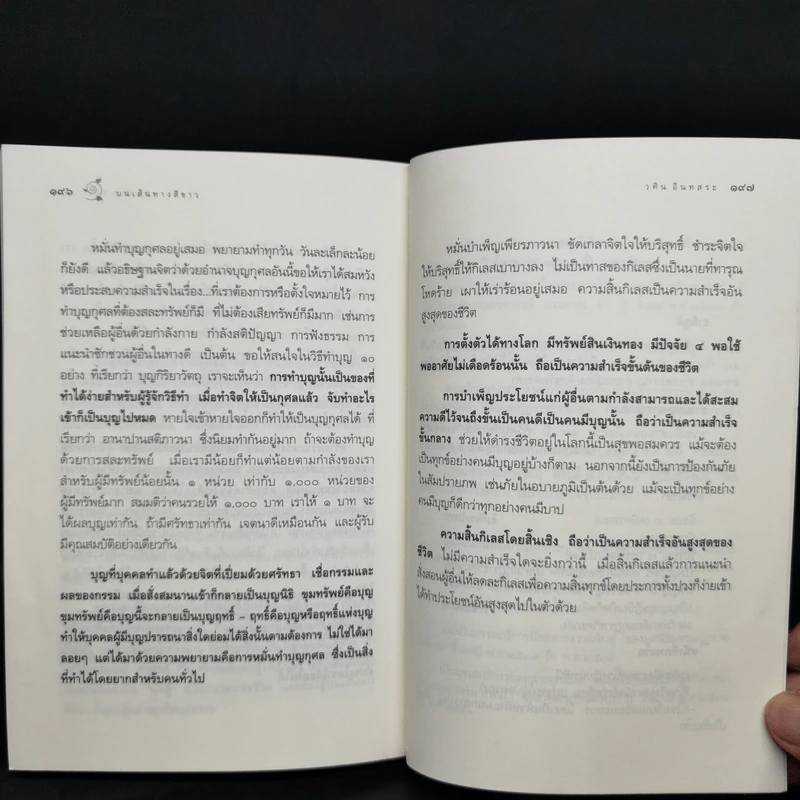 ๑๙๖ บนเส้นทางสีขาว
หมั่นทำบุญกุศลอยู่เสมอ พยายามทำทุกวัน วันละเล็กละน้อย
ก็ยังดี แล้วอธิษฐานจิตว่าด้วยอำนาจบุญกุศลอันนี้ขอให้เราได้สมหวัง
หรือประสบความสำเร็จในเรื่อง...ที่เราต้องการหรือตั้งใจหมายไว้ การ
ทำบุญกุศลที่ต้องสละทรัพย์ก็มี ที่ไม่ต้องเสียทรัพย์ก็มีมาก เช่นการ
ช่วยเหลือผู้อื่นด้วยกำลังกาย กำลังสติปัญญา การฟังธรรม การ
แนะนำชักชวนผู้อื่นในทางดี เป็นต้น ขอให้สนใจในวิธีทำบุญ ๑๐
อย่าง ที่เรียกว่า บุญกิริยาวัตถุ เราจะเห็นว่า การทำบุญนั้นเป็นของที่
ทำได้ง่ายสำหรับผู้รู้จักวิธีทำ เมื่อทำจิตให้เป็นกุศลแล้ว จับทำอะไร
เข้าก็เป็นบุญไปหมด หายใจเข้าหายใจออกก็ทำให้เป็นบุญกุศลได้ ที่
เรียกว่า อานาปานสติภาวนา ซึ่งนิยมทำกันอยู่มาก ถ้าจะต้องทำบุญ
ด้วยการสละทรัพย์ เมื่อเรามีน้อยก็ทำแต่น้อยตามกำลังของเรา
สำหรับผู้มีทรัพย์น้อยนั้น ๑ หน่วย เท่ากับ ๑,๐๐๐ หน่วยของ
ผู้มีทรัพย์มาก สมมติว่าคนรวยให้ ๑,๐๐๐ บาท เราให้ ๑ บาท จะ
ได้ผลบุญเท่ากัน ถ้ามีศรัทธาเท่ากัน เจตนาดีเหมือนกัน และผู้รับ
มีคุณสมบัติอย่างเดียวกัน
บุญที่บุคคลทำแล้วด้วยจิตที่เปี่ยมด้วยศรัทธา เชื่อกรรมและ
ผลของกรรม เมื่อสั่งสมนานเข้าก็กลายเป็นบุญนิธิ ขุมทรัพย์คือบุญ
ขุมทรัพย์คือบุญนี้จะกลายเป็นบุญฤทธิ์ – ฤทธิ์คือบุญหรือฤทธิ์แห่งบุญ
ทำให้บุคคลผู้มีบุญปรารถนาสิ่งใดย่อมได้สิ่งนั้นตามต้องการ ไม่ใช่ได้มา
ลอยๆ แต่ได้มาด้วยความพยายามคือการหมั่นทำบุญกุศล ซึ่งเป็นสิ่ง
ที่ทำได้โดยยากสำหรับคนทั่วไป
วศิน อินทสระ ๑๙๗
หมั่นบำเพ็ญเพียรภาวนา ขัดเกลาจิตใจให้บริสุทธิ์ ชำระจิตใจ
ให้บริสุทธิ์ให้กิเลสเบาบางลง ไม่เป็นทาสของกิเลสซึ่งเป็นนายที่ทารุณ
โหดร้าย เผาให้เร่าร้อนอยู่เสมอ ความสิ้นกิเลสเป็นความสำเร็จอัน
สูงสุดของชีวิต
การตั้งตัวได้ทางโลก มีทรัพย์สินเงินทอง มีปัจจัย ๔ พอใช้
พออาศัยไม่เดือดร้อนนั้น ถือเป็นความสำเร็จขั้นต้นของชีวิต
การบำเพ็ญประโยชน์แก่ผู้อื่นตามกำลังสามารถและได้สะสม
ความดีไว้จนถึงขั้นเป็นคนดีเป็นคนมีบุญนั้น ถือว่าเป็นความสำเร็จ
ขั้นกลาง ช่วยให้ดำรงชีวิตอยู่ในโลกนี้เป็นสุขพอสมควร แม้จะต้อง
เป็นทุกข์อย่างคนมีบุญอยู่บ้างก็ตาม นอกจากนี้ยังเป็นการป้องกันภัย
ในสัมปรายภพ เช่นภัยในอบายภูมิเป็นต้นด้วย แม้จะเป็นทุกข์อย่าง
คนมีบุญก็ดีกว่าทุกข์อย่างคนมีบาป
ความสิ้นกิเลสโดยสิ้นเชิง ถือว่าเป็นความสำเร็จอันสูงสุดของ
ชีวิต ไม่มีความสำเร็จใดจะยิ่งกว่านี้ เมื่อสิ้นกิเลสแล้วการแนะนำ
สั่งสอนผู้อื่นให้ลดละกิเลสเพื่อความสิ้นทุกข์โดยประการทั้งปวงก็ง่ายเข้า
ได้ทำประโยชน์อันสูงสุดไปในตัวด้วย